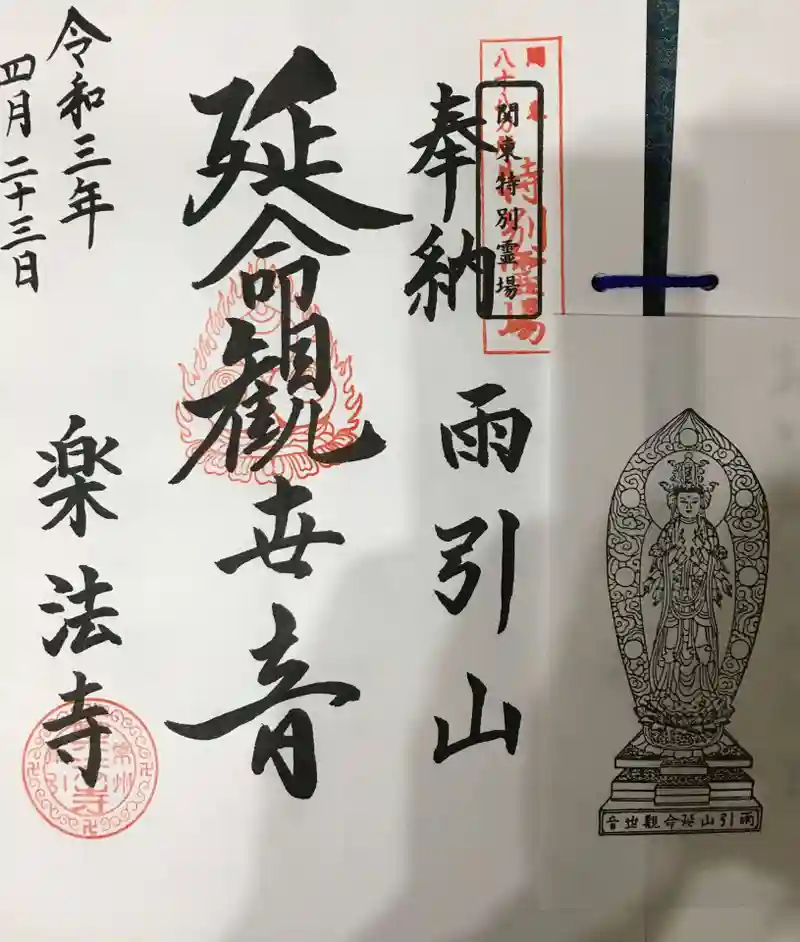 奉納
関東特別霊場
特別霊場
雨引山
延命観世音
令和三年
四月二十三日
楽法寺
雨引山延命観世音